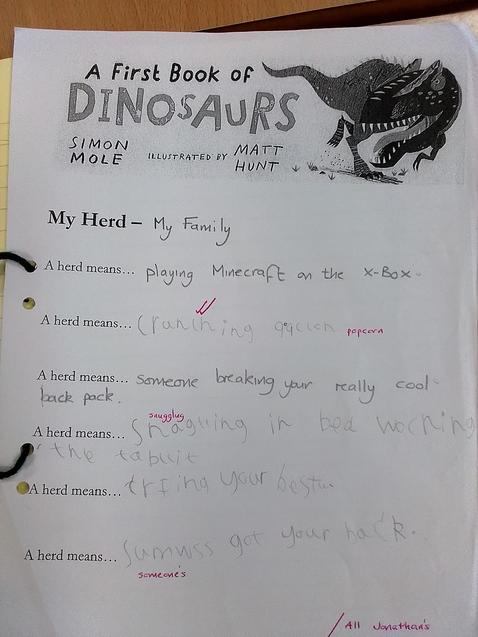 A First Book of
DINOSAURS
SIMON MOLE ILLUSTRATED BY MATT HUNT
My Herd – My Family
A herd means... playing Minecraft on the X-Box.
A herd means... Crunching popcorn
A herd means... someone breaking your really cool
back pack.
snugglug
A herd means... Snagulling in bed woching
the tabuit
A herd means... trfing your bestu.
A herd means... Sumwss got your back.
someone's
/ All Jonathan's